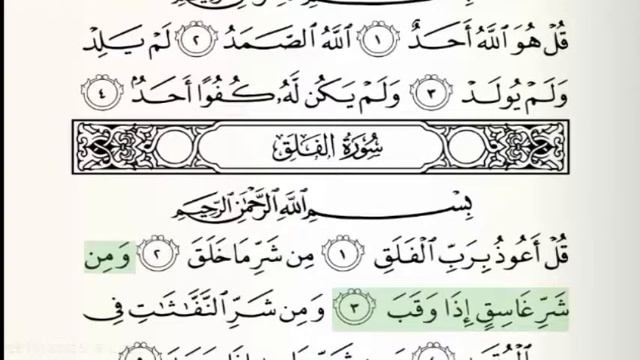 قُلْ هُوَ ٱللَّهُ أَحَدٌ ١ ٱللَّهُ ٱلصَّمَدُ ٢ لَمْ يَلِدْ
وَلَمْ يُولَدْ ٣ وَلَمْ يَكُن لَّهُۥ كُفُوًا أَحَدٌۢ ٤
سُورَةُ الفَلَقِ
بِسْمِ ٱللَّهِ ٱلرَّحْمَٰنِ ٱلرَّحِيمِ
قُلْ أَعُوذُ بِرَبِّ ٱلْفَلَقِ ١ مِن شَرِّ مَا خَلَقَ ٢ وَمِن
شَرِّ غَاسِقٍ إِذَا وَقَبَ ٣ وَمِن شَرِّ ٱلنَّفَّٰثَٰتِ فِى